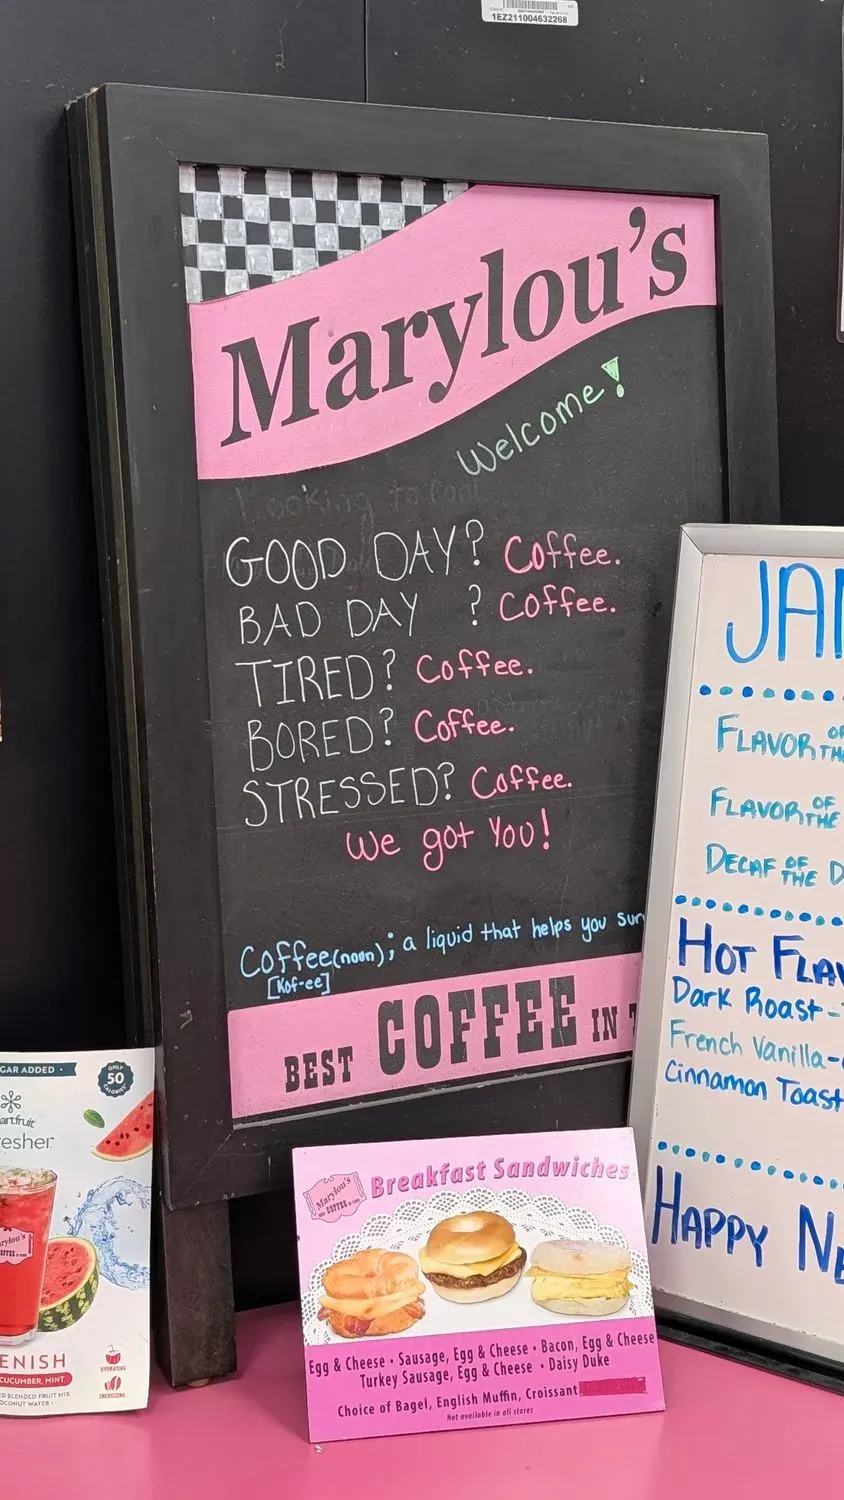 1EZ211004632268
Marylou's
Welcome!
Looking to
GOOD DAY? Coffee.
BAD DAY ? Coffee.
TIRED? Coffee.
BORED? Coffee.
STRESSED? Coffee.
We got You!
Coffee(noun); a liquid that helps you sur
[Kof-ee]
BEST COFFEE IN
JAN
FLAVOR OF THE
FLAVOR OF THE
DECAF OF THE D
HOT FLAV
Dark Roast-
French Vanilla-
Cinnamon Toast
HAPPY NE
GAR ADDED
ONLY 50 CALORIES
artfruit
esher
Marylou's
COFFEE
ENISH
CUCUMBER, MINT
D BLENDED FRUIT MIX
OCONUT WATER
HYDRATING
ENERGIZING
Marylou's
COFFEE
Breakfast Sandwiches
Egg & Cheese • Sausage, Egg & Cheese • Bacon, Egg & Cheese
Turkey Sausage, Egg & Cheese • Daisy Duke
Choice of Bagel, English Muffin, Croissant
Not available in all stores